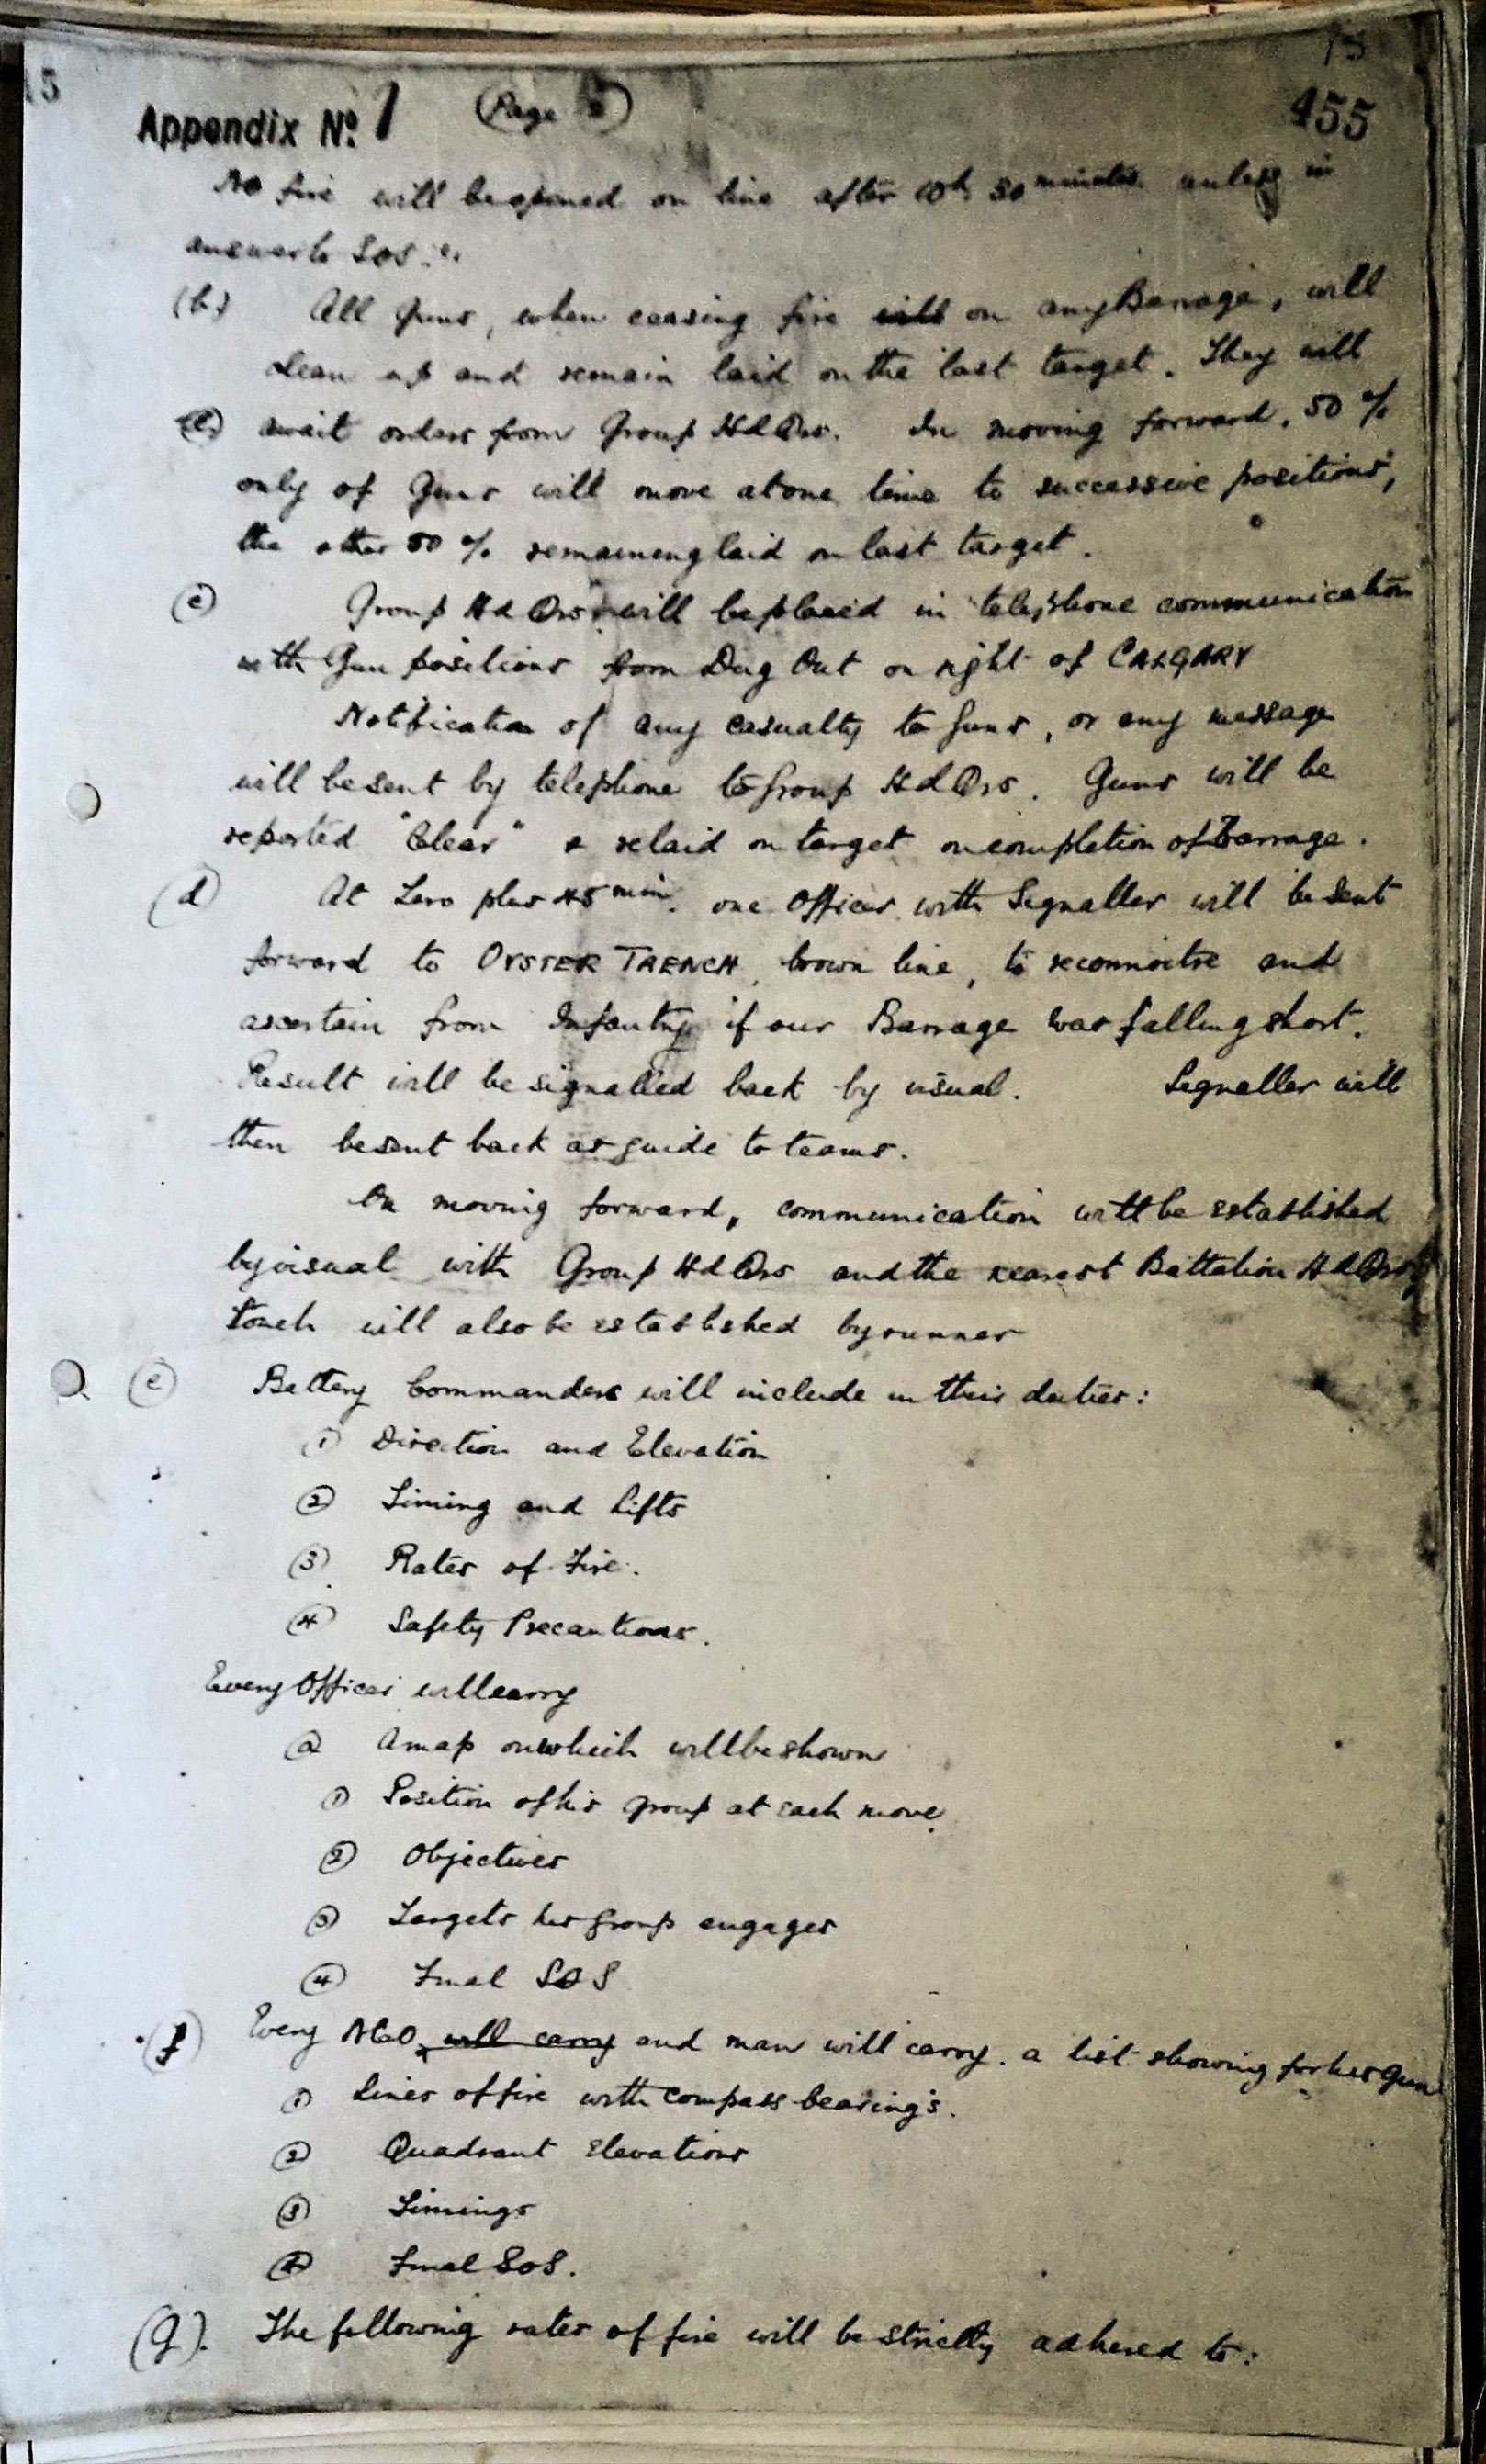 15
Appendix No. 1 (Page 2)
455
No fire will be opened on line after 10h 50 minutes unless in
answer to SOS."
(b) All Guns, when ceasing fire will on any Barrage, will
clean up and remain laid on the last target. They will
await orders from Group Hd Qrs. In moving forward, 50 %
only of Guns will move at one time to successive positions,
the other 50 % remaining laid on last target.
(c) Group Hd Qrs will be placed in telephone communication
with Gun positions from Dug Out on right of CALGARY
Notification of any casualty to Guns, or any message
will be sent by telephone to Group Hd Qrs. Guns will be
reported "Clear" & relaid on target on completion of Barrage.
(d) At Zero plus 45 min. one Officer with Signaller will be sent
forward to OYSTER TRENCH, brown line, to reconnoitre and
ascertain from Infantry if our Barrage was falling short.
Result will be signalled back by visual. Signaller will
then be sent back as guide to teams.
On moving forward, communication will be established
by visual with Group Hd Qrs and the nearest Battalion Hd Qrs
touch will also be established by runner
(e) Battery Commanders will include in their duties:
(1) Direction and Elevation
(2) Timing and Lifts
(3) Rates of Fire.
(4) Safety Precautions.
Every Officer will carry
(a) A map on which will be shown
(1) Position of his group at each move.
(2) Objectives
(3) Targets his group engages
(4) Final SOS
(f) Every NCO, will carry and man will carry. a list showing for his gun
(1) Lines of fire with compass bearings.
(2) Quadrant Elevations
(3) Timings
(4) Final SOS.
(g). The following rates of fire will be strictly adhered to: